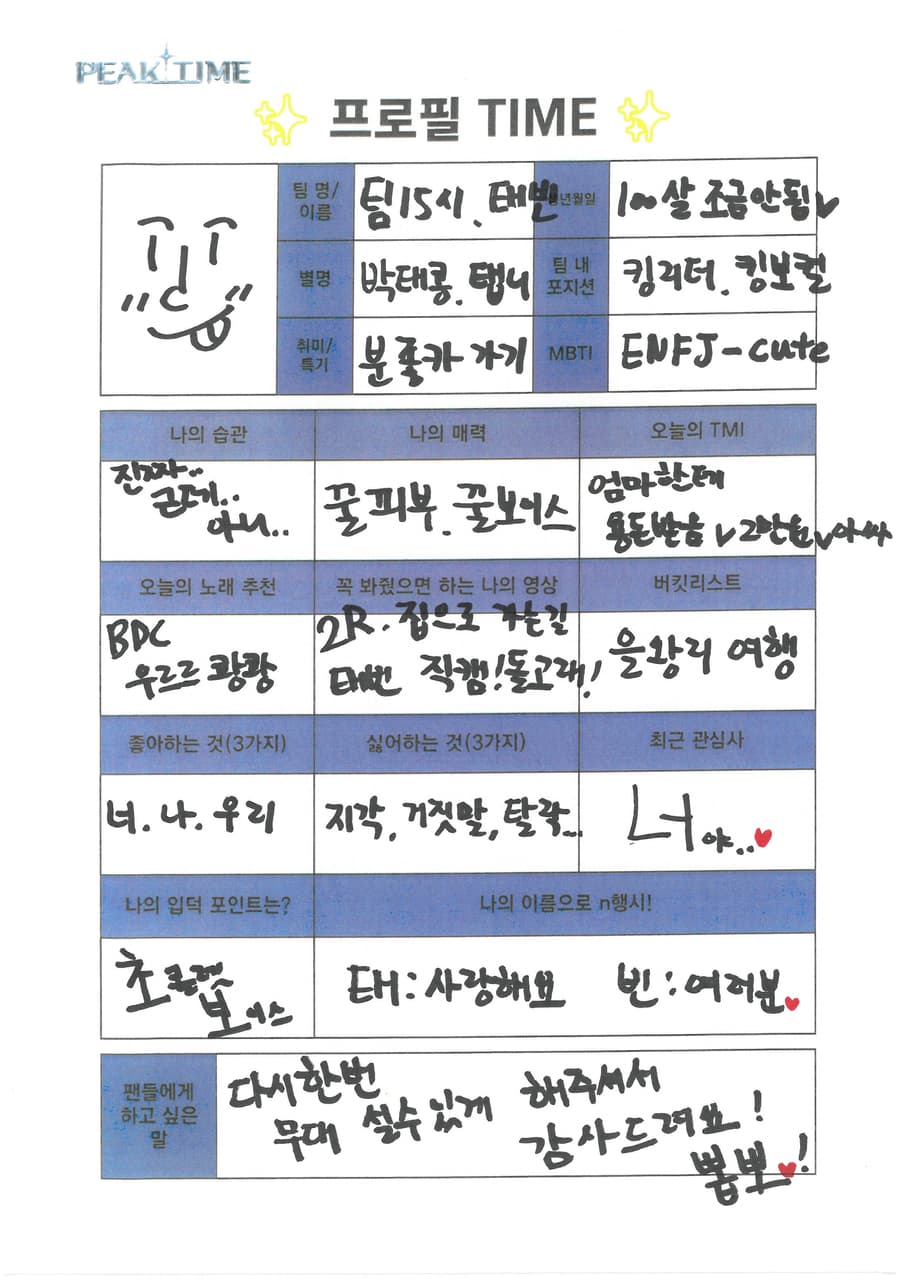 PEAK TIME
프로필 TIME
팀 명/
이름
팀15시, 태빈
생년월일
100살 조금안됨
별명
박태콩, 탭니
팀 내
포지션
킹리더, 킹보컬
취미/
특기
분좋카 가기
MBTI
ENFJ-cute
나의 습관
나의 매력
오늘의 TMI
진짜..
근데..
아니..
꿀피부, 꿀보이스
엄마한테
용돈받음 2만원 아싸
오늘의 노래 추천
꼭 봐줬으면 하는 나의 영상
버킷리스트
BDC
우르르 쾅쾅
2R. 집으로 가는길
태빈 직캠! 돌고래!
을왕리 여행
좋아하는 것(3가지)
싫어하는 것(3가지)
최근 관심사
너. 나. 우리
지각, 거짓말, 탈락...
너야..
나의 입덕 포인트는?
나의 이름으로 n행시!
초콜렛
보이스
태: 사랑해요
빈: 여러분
팬들에게
하고 싶은
말
다시한번
무대 설수있게
해주셔서
감사드려요!
뽑뽀!